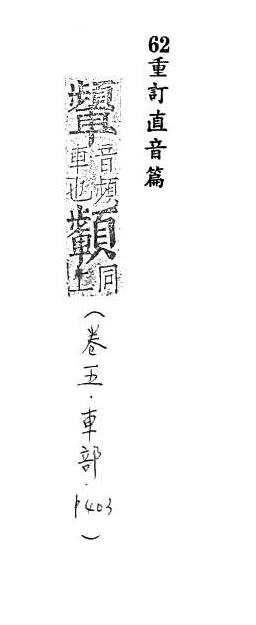 62重訂直音篇
音頻
車也
同
上
(卷五.車部.p403)